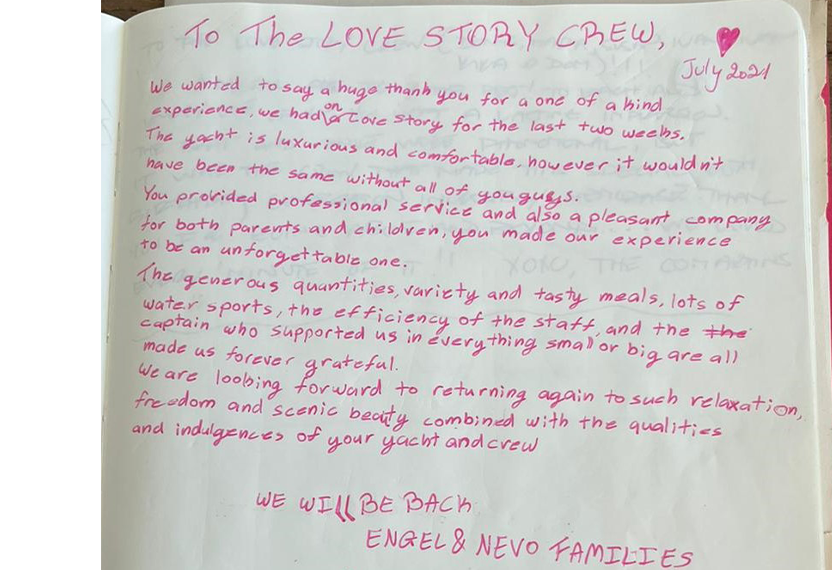 To The LOVE STORY CREW,
July 2021
We wanted to say a huge thank you for a one of a kind
experience, we had on Love Story for the last two weeks.
The yacht is luxurious and comfortable. however it wouldn't
have been the same without all of you guys.
You provided professional service and also a pleasant company
for both parents and children, you made our experience
to be an unforgettable one.
The generous quantities, variety and tasty meals, lots of
water sports, the efficiency of the staff, and the the
captain who supported us in everything small or big are all
made us forever grateful.
We are looking forward to returning again to such relaxation,
freedom and scenic beauty combined with the qualities
and indulgences of your yacht and crew
WE WILL BE BACK
ENGEL & NEVO FAMILIES